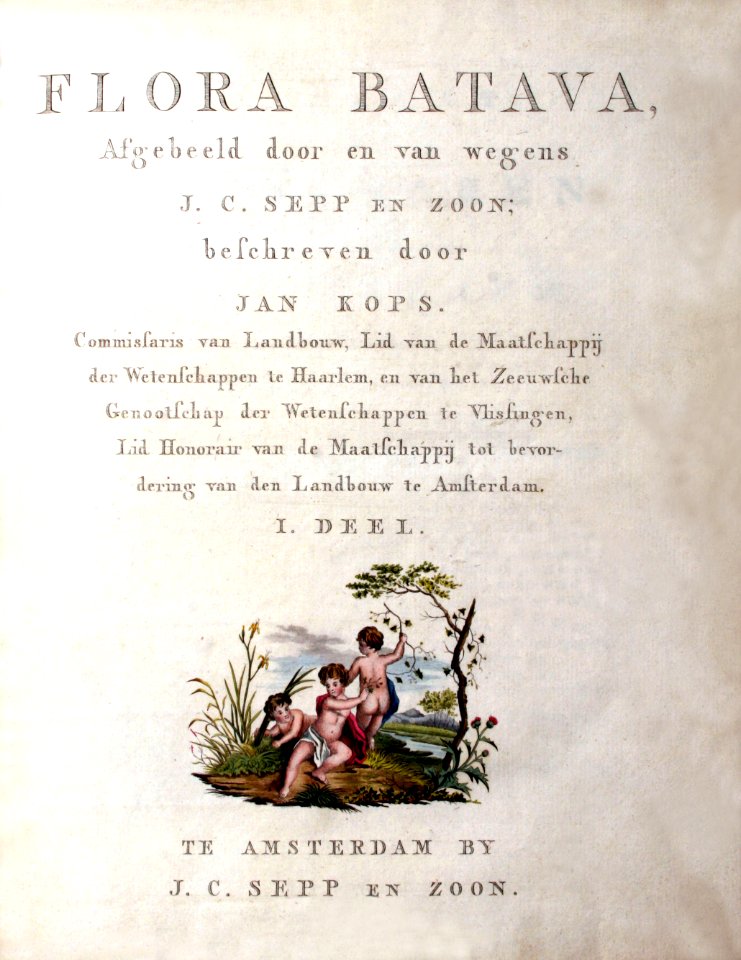 FLORA BATAVA,
Afgebeeld door en van wegens
J. C. SEPP EN ZOON;
beſchreven door
JAN KOPS.
Commisſaris van Landbouw, Lid van de Maatſchappij
der Wetenſchappen te Haarlem, en van het Zeeuwſche
Genootſchap der Wetenſchappen te Vlisſingen,
Lid Honorair van de Maatſchappij tot bevor-
dering van den Landbouw te Amſterdam.
I. DEEL.
TE AMSTERDAM BY
J. C. SEPP EN ZOON.